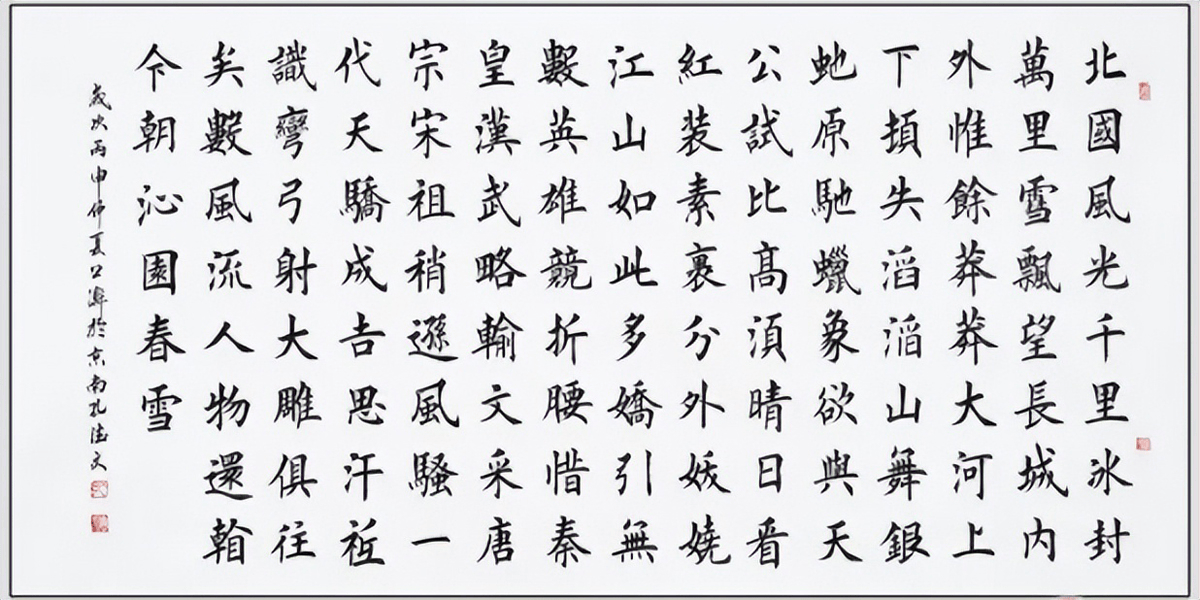 北國風光千里冰封
萬里雪飄望長城內
外惟餘莽莽大河上
下頓失滔滔山舞銀
虵原馳蠟象欲與天
公試比高須晴日看
紅裝素裹分外妖嬈
江山如此多嬌引無
數英雄競折腰惜秦
皇漢武略輸文采唐
宗宋祖稍遜風騷一
代天驕成吉思汗祗
識彎弓射大雕俱往
矣數風流人物還看
今朝沁園春雪
歲次丙申仲夏於京南孔德文